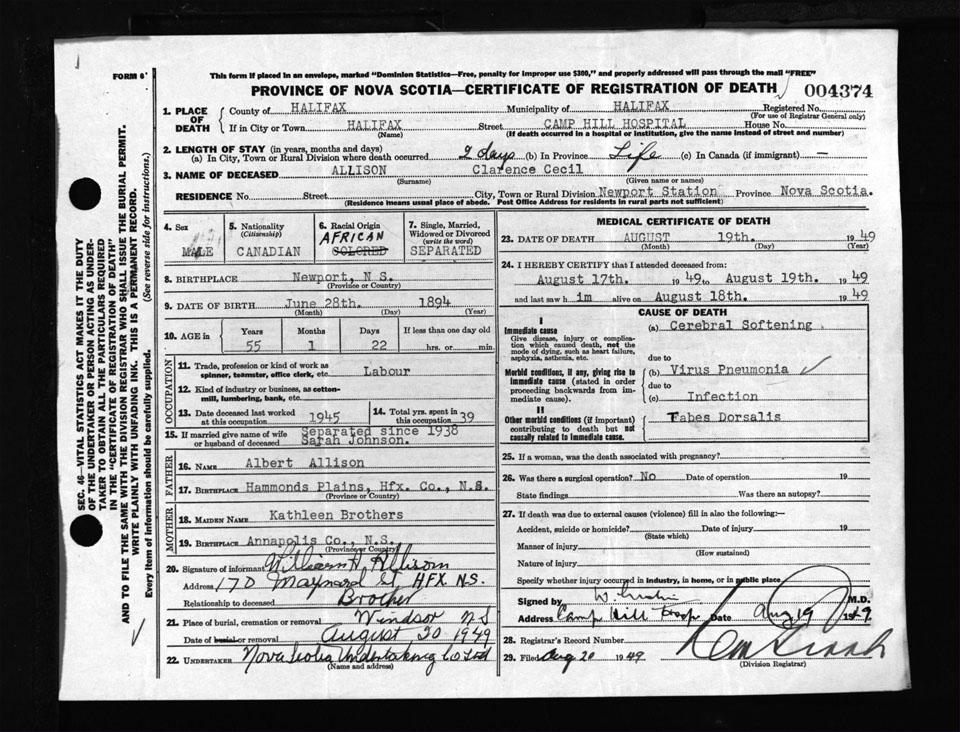 FORM 6
This form if placed in an envelope, marked "Dominion Statistics—Free, penalty for improper use $300," and properly addressed will pass through the mail "FREE"
PROVINCE OF NOVA SCOTIA—CERTIFICATE OF REGISTRATION OF DEATH 004374
1. PLACE OF DEATH
County of HALIFAX Municipality of HALIFAX Registered No.
(For use of Registrar General only)
If in City or Town HALIFAX Street CAMP HILL HOSPITAL House No.
(Name) (If death occurred in a hospital or institution, give the name instead of street and number)
2. LENGTH OF STAY (in years, months and days)
(a) In City, Town or Rural Division where death occurred 2 days (b) In Province Life (c) In Canada (if immigrant) —
3. NAME OF DECEASED ALLISON Clarence Cecil
(Surname) (Given name or names)
RESIDENCE No. Street City, Town or Rural Division Newport Station Province Nova Scotia.
(Residence means usual place of abode. Post Office Address for residents in rural parts not sufficient)
4. Sex
MALE
5. Nationality
(Citizenship)
CANADIAN
6. Racial Origin
AFRICAN
COLORED
7. Single, Married, Widowed or Divorced
(write the word)
SEPARATED
8. BIRTHPLACE Newport, N S.
(Province or Country)
9. DATE OF BIRTH June 28th. 1894
(Month) (Day) (Year)
10. AGE in Years Months Days If less than one day old
55 1 22 hrs. or min.
OCCUPATION
11. Trade, profession or kind of work as spinner, teamster, office clerk, etc. Labour
12. Kind of industry or business, as cotton-mill, lumbering, bank, etc.
13. Date deceased last worked at this occupation 1945
14. Total yrs. spent in this occupation 39
15. If married give name of wife or husband of deceased Separated since 1938
Sarah Johnson.
FATHER
16. NAME Albert Allison
17. BIRTHPLACE Hammonds Plains, Hfx. Co., N.S.
(Province or Country)
MOTHER
18. MAIDEN NAME Kathleen Brothers
19. BIRTHPLACE Annapolis Co., N.S.
(Province or Country)
20. Signature of informant William H Allison
Address 170 Maynard St, HFX N.S.
Relationship to deceased Brother
21. Place of burial, cremation or removal Windsor N S
Date of burial or removal August 20 1949
22. UNDERTAKER Nova Scotia Undertaking Co Ltd
(Name and address)
MEDICAL CERTIFICATE OF DEATH
23. DATE OF DEATH AUGUST 19th. 1949
(Month) (Day) (Year)
24. I HEREBY CERTIFY that I attended deceased from:
August 17th. 1949 to August 19th. 1949
and last saw h im alive on August 18th. 1949
CAUSE OF DEATH
I
Immediate cause
Give disease, injury or complication which caused death, not the mode of dying, such as heart failure, asphyxia, asthenia, etc.
(a) Cerebral Softening
due to
Morbid conditions, if any, giving rise to immediate cause (stated in order proceeding backwards from immediate cause).
(b) Virus Pneumonia
due to
(c) Infection
II
Other morbid conditions (if important) contributing to death but not causally related to immediate cause.
Tabes Dorsalis
25. If a woman, was the death associated with pregnancy?
26. Was there a surgical operation? No Date of operation 19
State findings Was there an autopsy?
27. If death was due to external causes (violence) fill in also the following:—
Accident, suicide or homicide? Date of injury 19
(State which)
Manner of injury
(How sustained)
Nature of injury
Specify whether injury occurred in industry, in home, or in public place
Signed by M.D.
Address Camp Hill Hosp Date Aug 19 1949
28. Registrar's Record Number
29. Filed Aug 20 1949
(Division Registrar)
SEC. 46—VITAL STATISTICS ACT MAKES IT THE DUTY
OF THE UNDERTAKER OR PERSON ACTING AS UNDER-
TAKER TO OBTAIN ALL THE PARTICULARS REQUIRED
IN THE "CERTIFICATE OF REGISTRATION OF DEATH"
AND TO FILE THE SAME WITH THE DIVISION REGISTRAR WHO SHALL ISSUE THE BURIAL PERMIT.
WRITE PLAINLY WITH UNFADING INK. THIS IS A PERMANENT RECORD.
Every item of information should be carefully supplied. (See reverse side for instructions.)